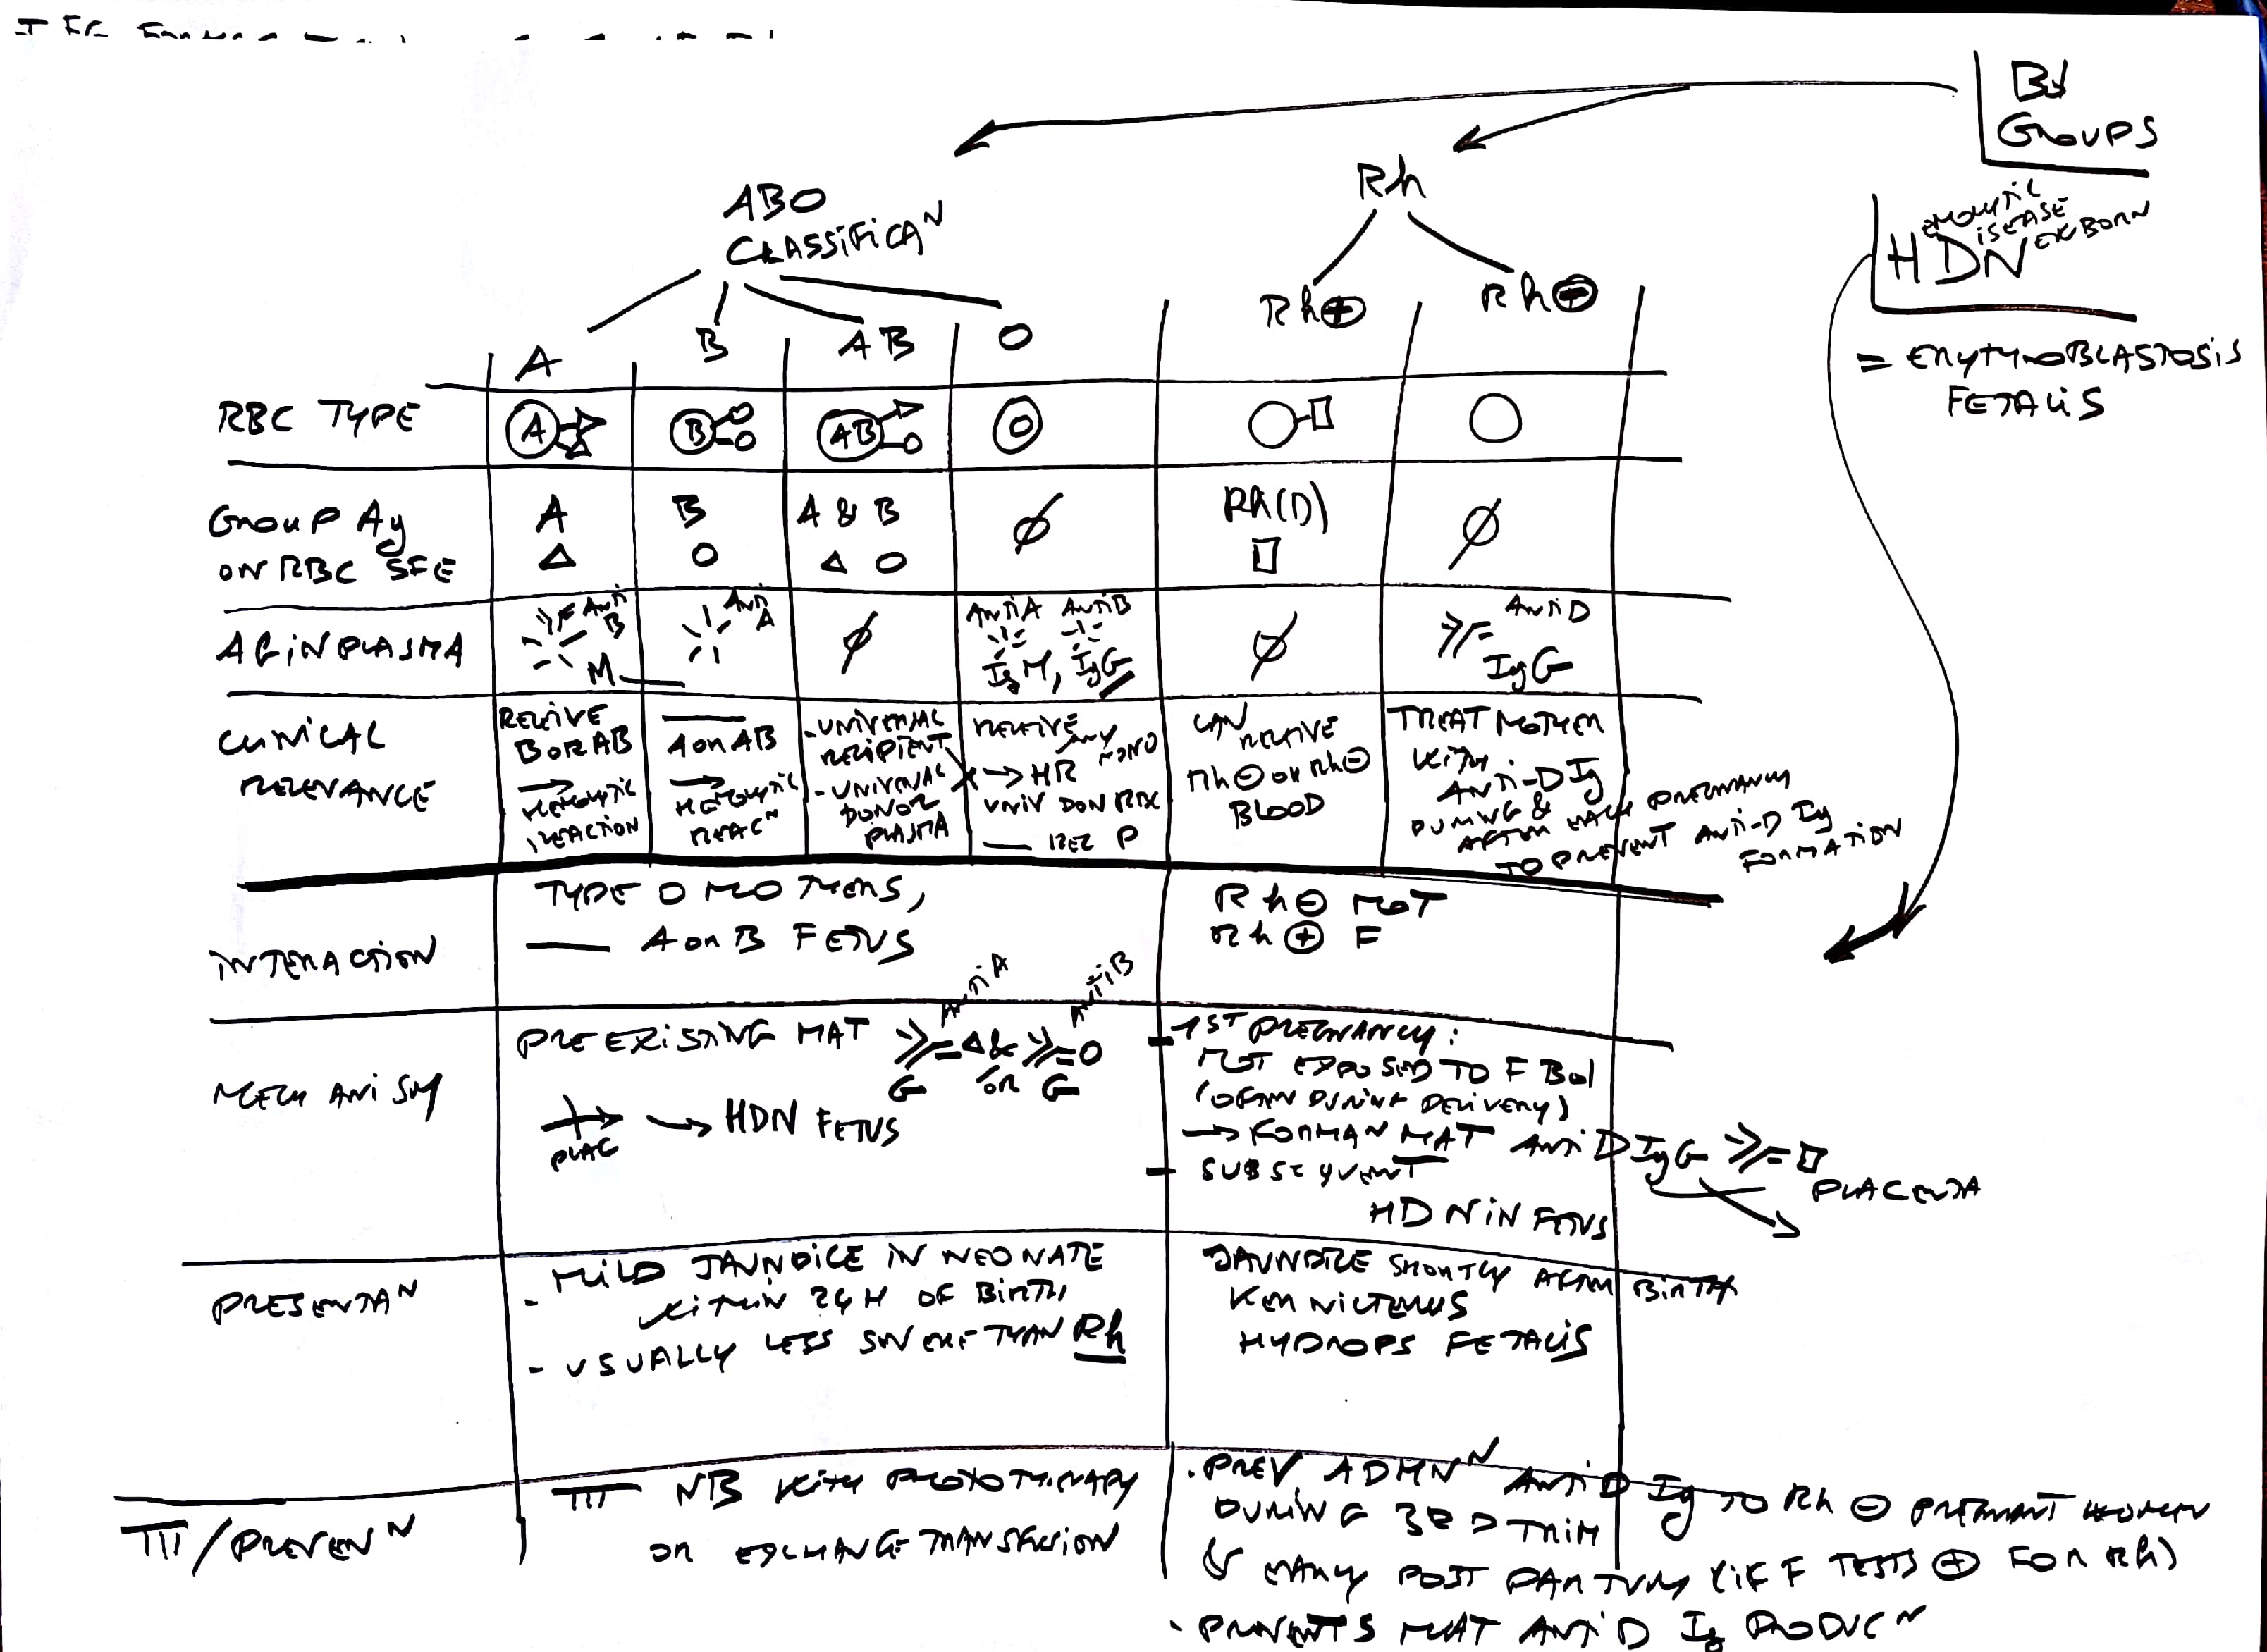 Bd
GROUPS
HDN
EMOLYTIC
ISEASE
EWBORN
= ERYTHROBLASTOSIS
FETALIS
ABO
CLASSIFICAᴺ
Rh
A
B
AB
O
Rh⊕
Rh⊖
RBC TYPE
A
B
AB
O
GROUP Ag
ON RBC SFE
A
B
A & B
∅
Rh(D)
∅
AB IN PLASMA
ANTI
B
M
ANTI
A
∅
ANTIA ANTIB
IgM, IgG
∅
ANTI D
IgG
CLINICAL
RELEVANCE
RECEIVE
B OR AB
→
HEMOLYTIC
REACTION
A OR AB
→
HEMOLYTIC
REACᴺ
- UNIVERSAL
RECIPIENT
- UNIVERSAL
DONOR
PLASMA
RECEIVE
ANY
NON O
→ HR
UNIV DON RBC
REC P
CAN
RECEIVE
Rh⊖ OR Rh⊖
BLOOD
TREAT MOTHER
WITH
ANTI-D Ig
DURING &
AFTER EACH PREGNANCY
TO PREVENT ANTI-D Ig
FORMATION
INTERACTION
TYPE O MOTHERS,
A OR B FETUS
Rh⊖ MOT
Rh⊕ F
MECHANISM
PREEXISTING MAT
ANTIA
ANTIB
& OR
G G
PLAC
→ HDN FETUS
- 1ST PREGNANCY:
MOT EXPOSED TO F Bd
(OFTEN DURING DELIVERY)
→ FORMAN MAT ANTI D IgG
- SUBSEQUENT
PLACENTA
HDN IN FETUS
PRESENTAᴺ
- MILD JAUNDICE IN NEONATE
WITHIN 24H OF BIRTH
- USUALLY LESS SEVERE THAN Rh
JAUNDICE SHORTLY AFTER BIRTH
KERNICTERUS
HYDROPS FETALIS
TTT/PREVENᴺ
TTT NB WITH PHOTOTHERAPY
OR EXCHANGE TRANSFUSION
. PREV ADMNᴺ ANTI D Ig TO Rh ⊖ PREGNANT WOMEN
DURING 3RD TRIM
& EARLY POST PARTUM (IF F TESTS ⊕ FOR Rh)
. PREVENTS MAT ANTI D Ig PRODUCᴺ